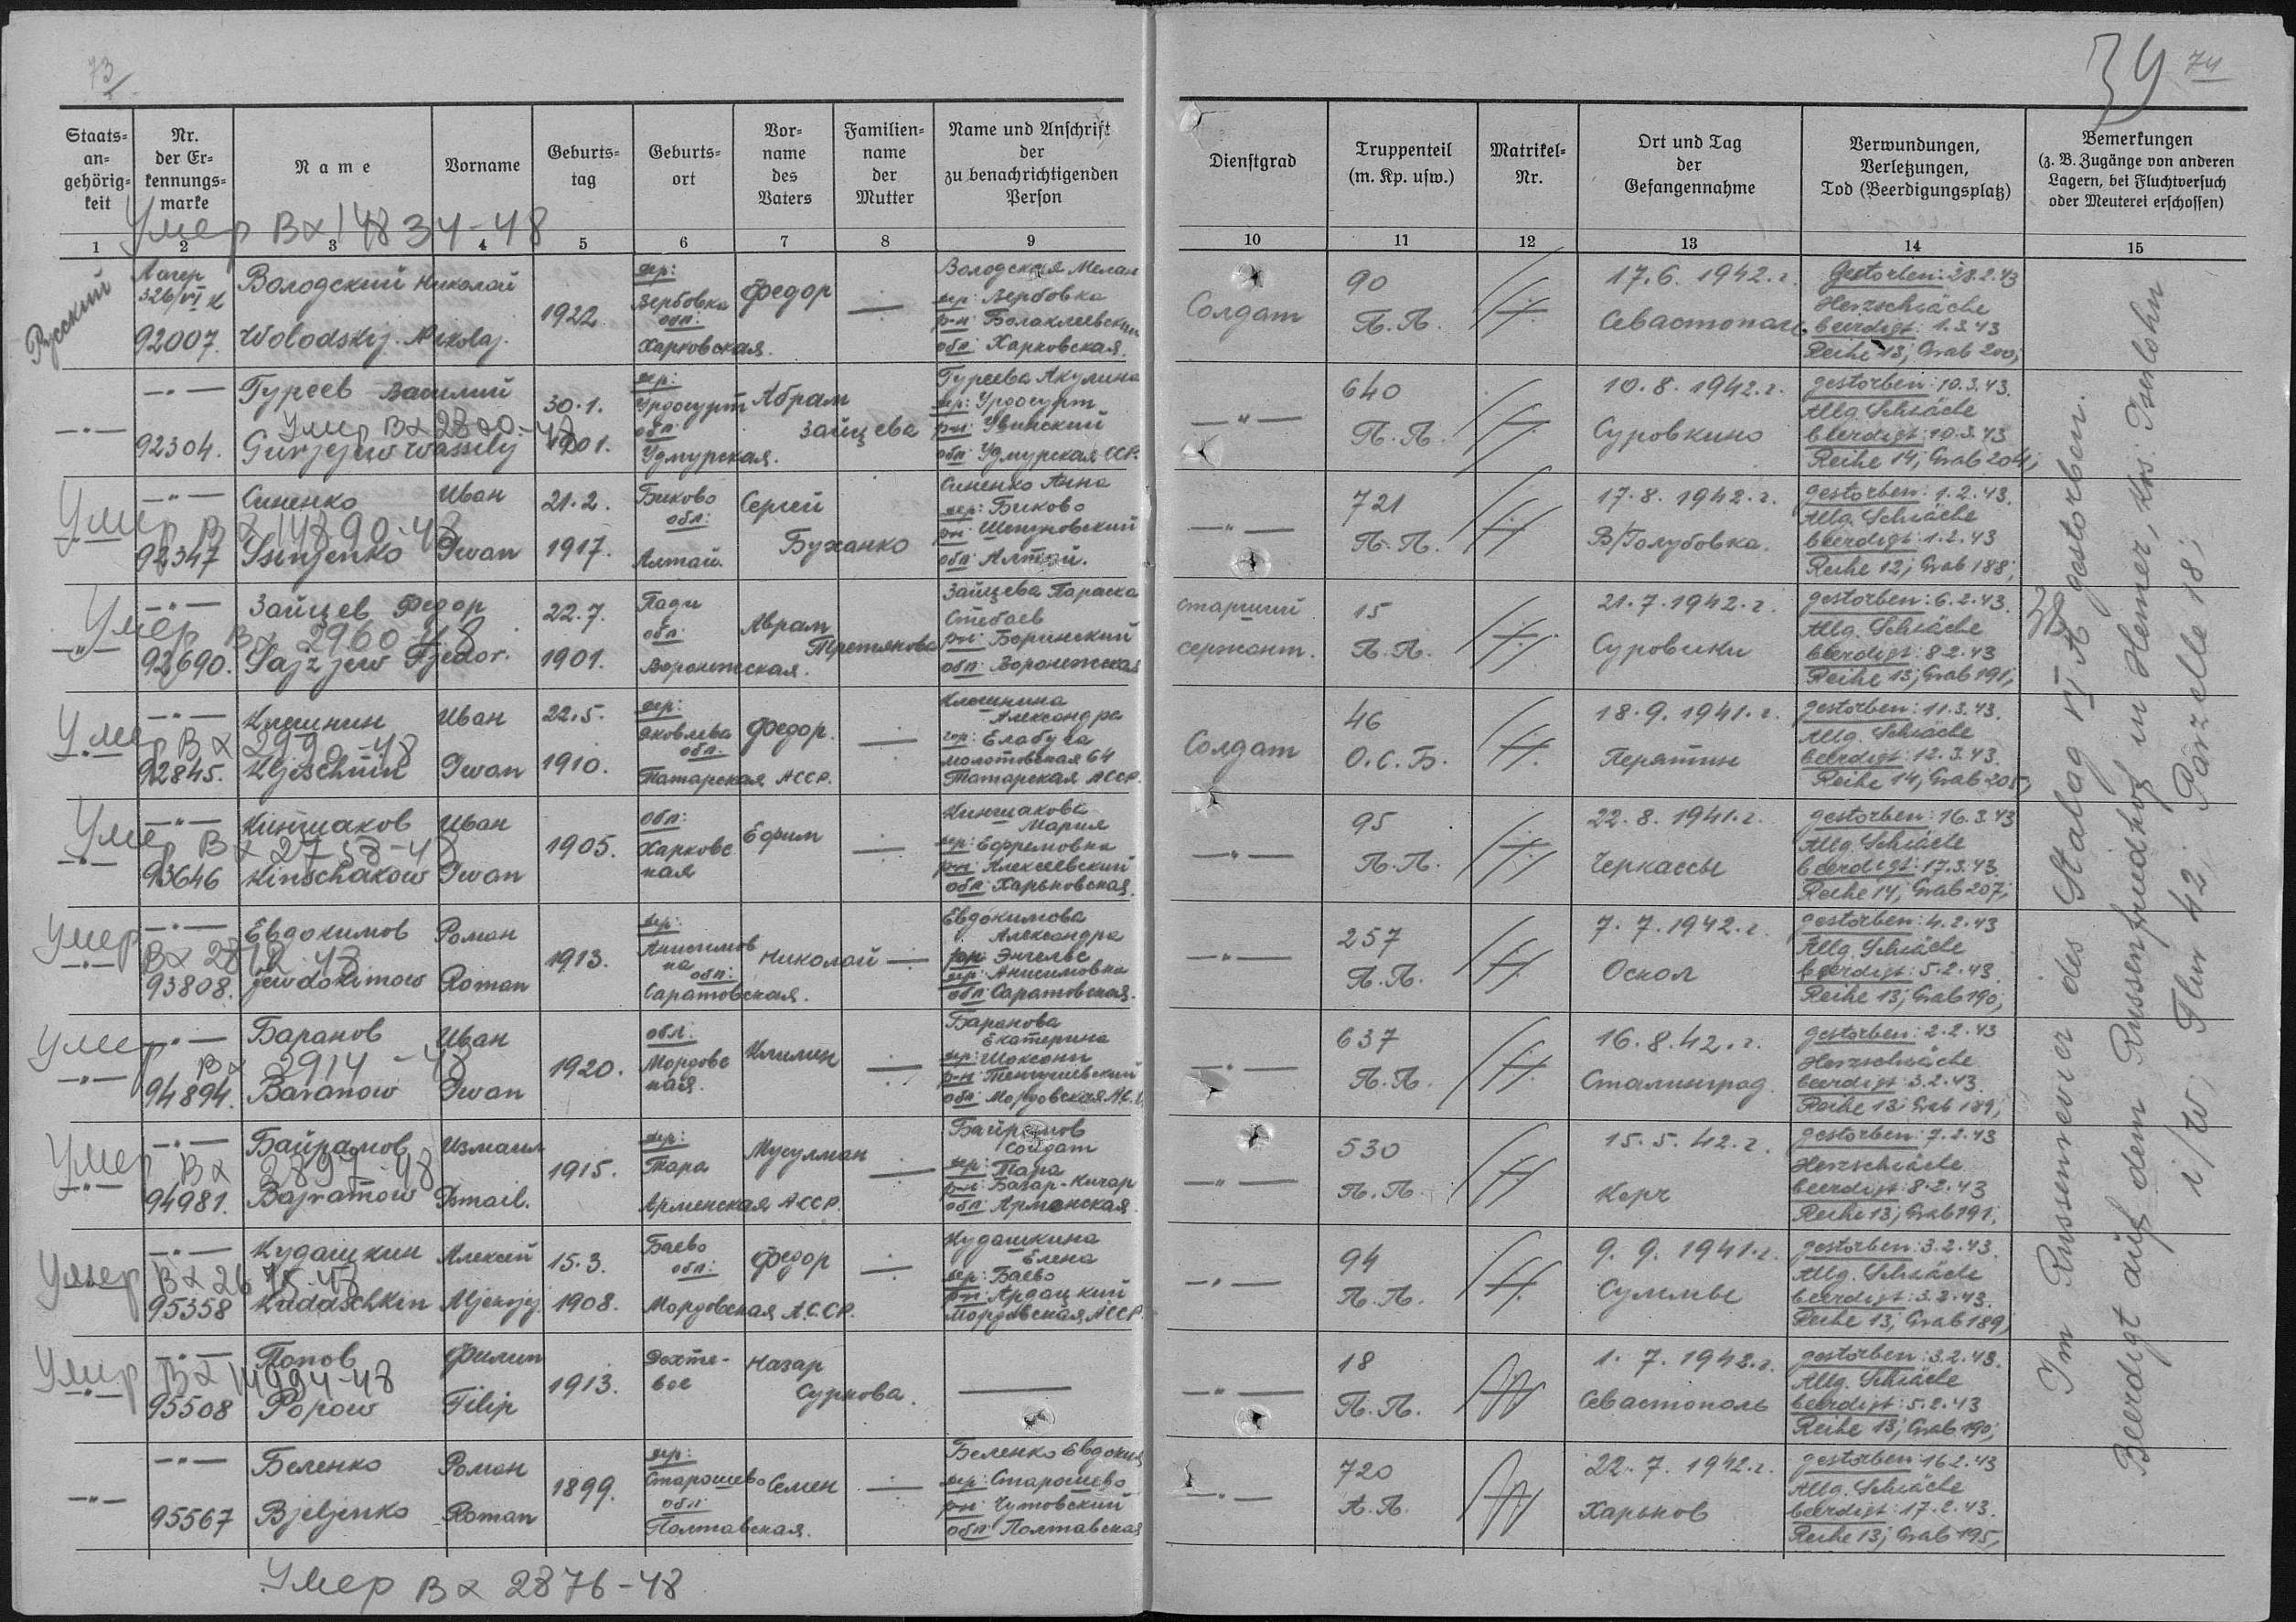 73
39 74
Staats=
an=
gehörig=
keit
Nr.
der Er=
kennungs=
marke
Name
Vorname
Geburts=
tag
Geburts=
ort
Vor=
name
des
Vaters
Familien=
name
der
Mutter
Name und Anschrift
der
zu benachrichtigenden
Person
Dienstgrad
Truppenteil
(m. Kp. usw.)
Matrikel=
Nr.
Ort und Tag
der
Gefangennahme
Verwundungen,
Verletzungen,
Tod (Beerdigungsplatz)
Bemerkungen
(z. B. Zugänge von anderen
Lagern, bei Fluchtversuch
oder Meuterei erschossen)
Умер Вх 14834-48
1 2 3 4 5 6 7 8 9 10 11 12 13 14 15
Русский
Лагер
326/VI К
92007.
Володский Николай
Wolodskij. Nikolaj.
1922
дер:
Вербовка
обл:
Харковская.
Федор
Володская Мелан
дер: Вербовка
р-н: Балаклеевский
обл: Харковская.
Солдат
90
П.П.
17.6. 1942.г.
Севастополь.
Gestorben: 28.2.43
Herzschäche
beerdigt: 1.3.43
Reihe 13; Grab 200;
—"—
92304.
Гуреев Василий
Умер Вх 2800-48
Gurjejew Wassilij
30.1.
1901.
дер:
Урдогурт
обл:
Удмурская.
Абрам
Зайцева
Гуреева Акулина
дер: Урдогурт
р-н: Увинский
обл: Удмурская ССР.
—"—
640
П.П.
10.8. 1942.г.
Суровкино
gestorben: 10.3.43.
Allg. Schäche
beerdigt: 10.3.43
Reihe 14; Grab 204;
—"—
Умер Вх 14890-48
92347
Синенко Иван
Ssinjenko Iwan
21.2.
1917.
Быково
обл:
Алтай.
Сергей
Буханко
Синенко Анна
дер: Быково
р-н: Шепуновский
обл: Алтай.
—"—
721
П.П.
17.8. 1942.г.
В/Голубовка.
gestorben: 1.2.43.
Allg. Schäche
beerdigt: 1.2.43
Reihe 12; Grab 188;
—"—
Умер Вх 2960-48
92690.
Зайцев Федор
Sajzjew Fjedor.
22.7.
1901.
Пади
обл:
Воронежская.
Аврам
Третьякова
Зайцева Параска
Стебаев
р-н: Боринский
обл: Воронежская
старший
сержант.
15
П.П.
21.7.1942.г.
Суровики
gestorben: 6.2.43.
Allg. Schäche
beerdigt: 8.2.43
Reihe 13; Grab 191;
—"—
Умер Вх 2990-48
92845.
Клешнин Иван
Kljeschnin Iwan
22.5.
1910.
дер:
Яковлева
обл:
Татарская АССР.
Федор.
Клешнина
Александра
гор: Елабуга
Молотовская 64
Татарская АССР.
Солдат
46
О.С.Б.
18.9. 1941.г.
Перятин
gestorben: 11.3.43.
Allg. Schäche
beerdigt: 12.3.43.
Reihe 14; Grab 205;
—"—
93646
Киншаков Иван
Kinschakow Iwan
1905.
обл:
Харковс
кая
Ефим
Киншакова
Мария
дер: Ефремовка
р-н: Алексеевский
обл: Харьковская.
—"—
95
П.П.
22.8. 1941.г.
Черкассы
gestorben: 16.3.43
Allg. Schäche
beerdigt: 17.3.43.
Reihe 14; Grab 207;
—"—
Умер
93808.
Евдокимов Роман
Jewdokimow Roman
1913.
дер:
Анисимов
ка
обл:
Саратовская.
Николай
Евдокимова
Александра
р-н: Энгельс
дер: Анисимовка
обл: Саратовская.
—"—
257
П.П.
7.7.1942.г.
Оскол
gestorben: 4.2.43
Allg. Schäche
beerdigt: 5.2.43.
Reihe 13; Grab 190;
—"—
Умер Вх 2914-48
94894.
Баранов Иван
Baranow Iwan
1920.
обл:
Мордовс
кая.
Климен
Баранова
Екатерина
дер: Шоксани
р-н: Тенгушевский
обл: Мордовская
—"—
637
П.П.
16.8.42.г.
Сталинград.
gestorben: 2.2.43
Herzschäche
beerdigt: 3.2.43.
Reihe 13 Grab 189;
—"—
Умер Вх 2897-48
94981.
Байрамов Измаил
Bajramow Ismail.
1915.
дер:
Тара
Арменская АССР.
Мусулман
Байрамов
Солдат
дер: Тара
р-н: Базар-Кичар
обл: Арманская
—"—
530
П.П.
15.5.42.г.
Керч
gestorben: 7.2.43
Herzschäche
beerdigt: 8.2.43
Reihe 13; Grab 191;
—"—
Умер
95358
Кудашкин Алексей
Kudaschkin Aljeksjej
15.3.
1908.
Баево
обл:
Мордовская А.С.СР.
Федор
Кудашкина
Елена
дер: Баево
р-н: Ардацкий
Мордовская, АССР.
—"—
94
П.П.
9.9. 1941.г.
Суммы
gestorben: 3.2.43.
Allg. Schäche
beerdigt: 3.2.43.
Reihe 13; Grab 189;
—"—
Умер Вх 14994-48
95508
Попов Филип
Popow Filip
1913.
Дехте-
вое
Назар
Суркова.
—"—
18
П.П.
1.7. 1942.г.
Севастополь
gestorben: 3.2.43.
Allg. Schäche
beerdigt: 5.2.43
Reihe 13; Grab 190;
—"—
95567
Беленко Роман
Bjeljenko Roman
1899.
дер:
Старошево
обл:
Полтавская.
Семен
Беленко Евдокия
дер: Старошево
р-н: Чутовский
обл: Полтавская
—"—
720
А.П.
22.7. 1942.г.
Харьков
gestorben: 16.2.43
Allg. Schäche
beerdigt: 17.2.43.
Reihe 13; Grab 195;
Умер Вх 2876-48
Im Russenrevier des Stalag VI A gestorben.
Beerdigt auf dem Russenfriedhof in Hemer, Krs. Iserlohn
i/W; Flur 42; Parzelle 18;